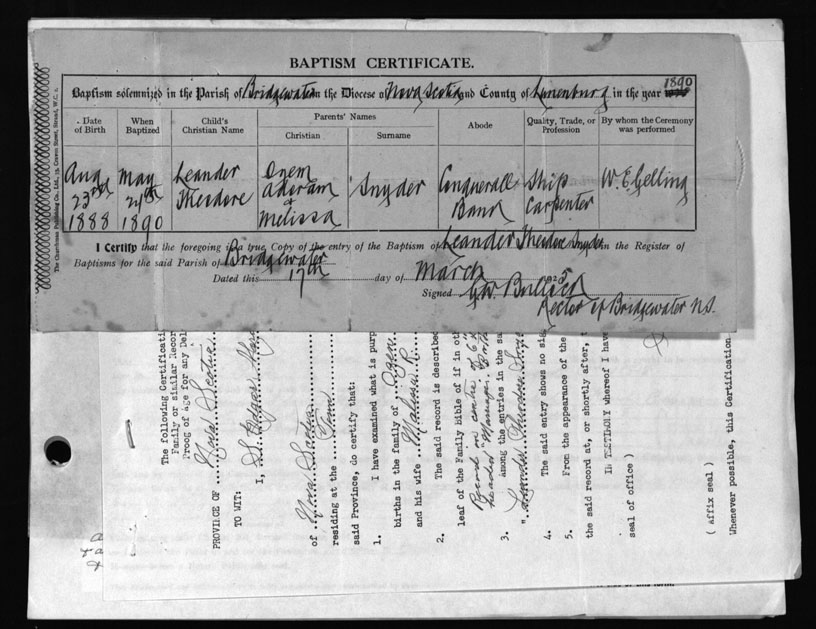 BAPTISM CERTIFICATE.
Baptism solemnized in the Parish of Bridgewater in the Diocese of Nova Scotia and County of Lunenburg in the year 1890
Date of Birth
When Baptized
Child's Christian Name
Parents' Names
Christian
Surname
Abode
Quality, Trade, or Profession
By whom the Ceremony was performed
Aug 23rd 1888
May 24th 1890
Leander Theodore
Ozem Adoram & Melissa
Snyder
Conquerall Bank
Ship Carpenter
W. E. Gelling
I Certify that the foregoing is a true Copy of the entry of the Baptism of Leander Theodore Snyder in the Register of
Baptisms for the said Parish of Bridgewater
Dated this 17th day of March 1925
Signed
Rector of Bridgewater N.S.
The Churchman Publishing Co., Ltd.,
The following Certificati
Family or similar Recor
Proog of age for any Del
PROVINCE OF Nova Scotia
TO WIT:
I,
of Nova Scotia
residing at the
said Province, do certify that:
1. I have examined what is purp
births in the family of Ozem
and his wife
2. The said record is described
leaf of the Family Bible of if in oth
3. Among the entries in the sa
4. The said entry shows no sig
5. From the appearance of the
the said record at, or shortly after, t
IN TESTIMONY whereof I have
seal of office )
( Affix seal )
Whenever possible, this Certification